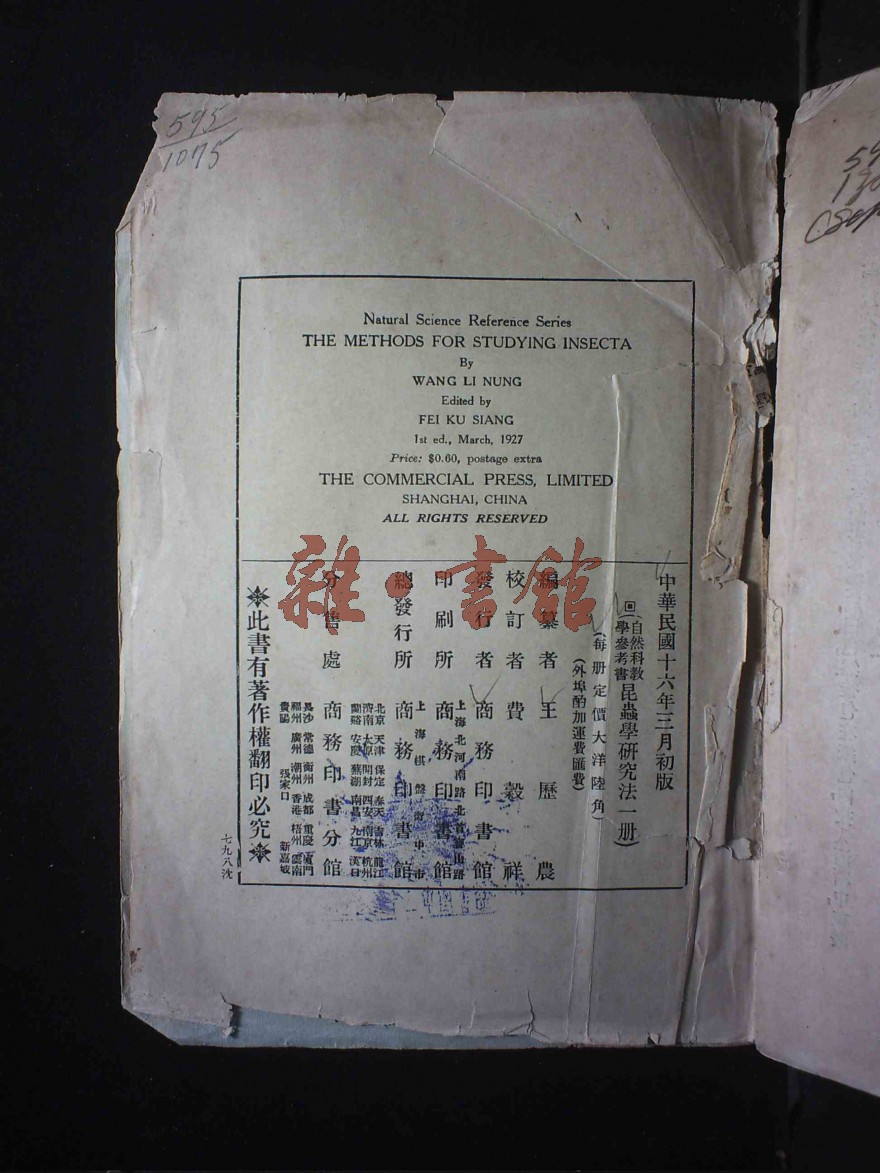 595
1075
Natural Science Reference Series
THE METHODS FOR STUDYING INSECTA
By
WANG LI NUNG
Edited by
FEI KU SIANG
1st ed., March, 1927
Price: $0.60, postage extra
THE COMMERCIAL PRESS, LIMITED
SHANGHAI, CHINA
ALL RIGHTS RESERVED
雜·書館
中華民國十六年三月初版
自然科教學參考書 昆蟲學研究法一册)
(每册定價大洋陸角)
(外埠酌加運費匯費)
編纂者 王歷農
校訂者 費穀祥
發行者 商務印書館
印刷所 上海北河南路北首寶山路 商務印書館
總發行所 上海棋盤街中市 商務印書館
分售處 商務印書分館
北京 天津 保定 奉天 吉林 龍江
濟南 太原 開封 西安 南京 杭州
蘭谿 安慶 蕪湖 南昌 九江 漢口
長沙 常德 衡州 成都 重慶 廈門
福州 廣州 潮州 香港 梧州 雲南
貴陽 張家口 新嘉坡
※此書有著作權翻印必究※
七九八沈